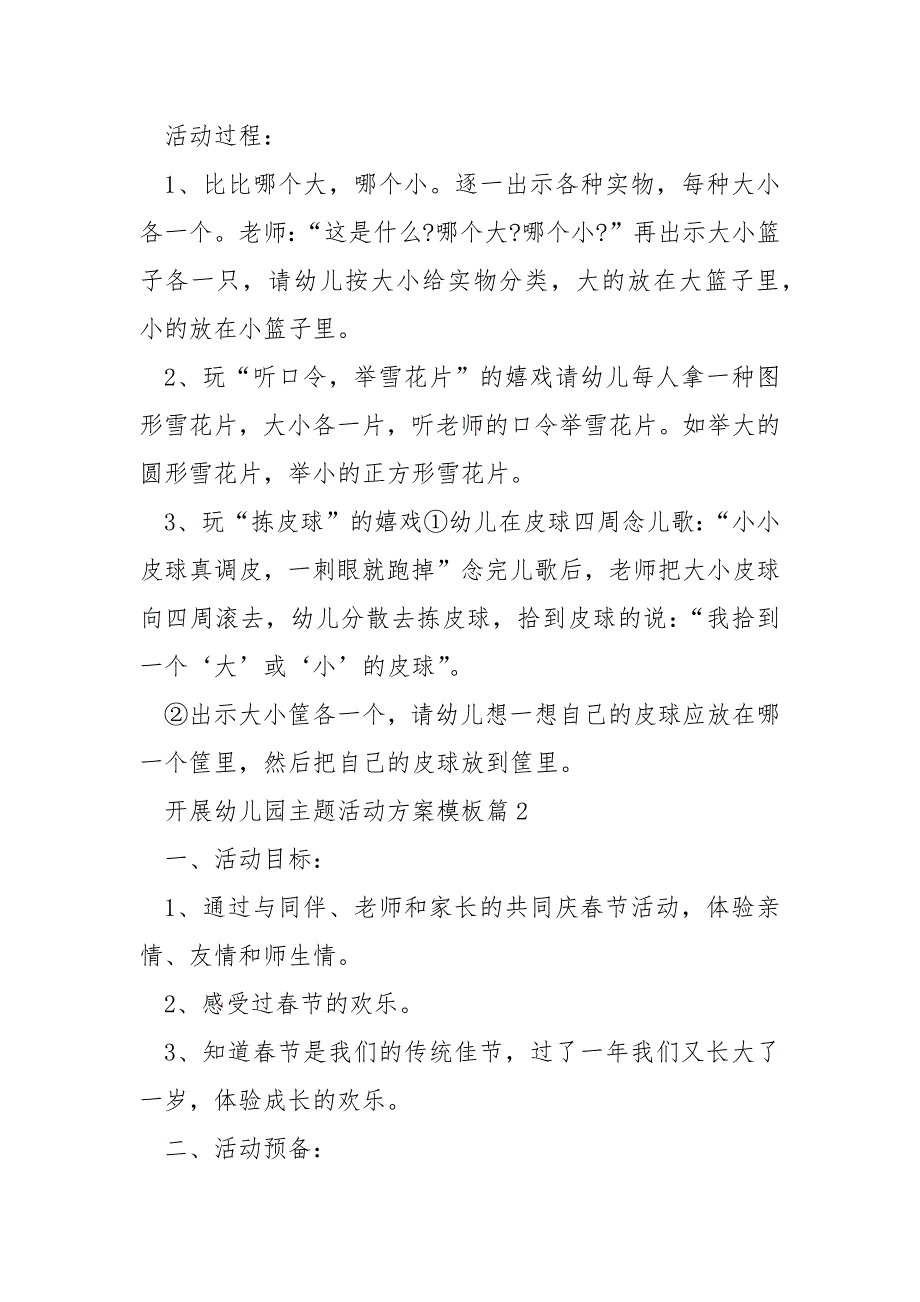 活动过程：
1、比比哪个大，哪个小。逐一出示各种实物，每种大小
各一个。老师：“这是什么?哪个大?哪个小?”再出示大小篮
子各一只，请幼儿按大小给实物分类，大的放在大篮子里，
小的放在小篮子里。
2、玩“听口令，举雪花片”的嬉戏请幼儿每人拿一种图
形雪花片，大小各一片，听老师的口令举雪花片。如举大的
圆形雪花片，举小的正方形雪花片。
3、玩“拣皮球”的嬉戏①幼儿在皮球四周念儿歌：“小小
皮球真调皮，一刺眼就跑掉”念完儿歌后，老师把大小皮球
向四周滚去，幼儿分散去拣皮球，拾到皮球的说：“我拾到
一个‘大’或‘小’的皮球”。
②出示大小筐各一个，请幼儿想一想自己的皮球应放在哪
一个筐里，然后把自己的皮球放到筐里。
开展幼儿园主题活动方案模板篇2
一、活动目标：
1、通过与同伴、老师和家长的共同庆春节活动，体验亲
情、友情和师生情。
2、感受过春节的欢乐。
3、知道春节是我们的传统佳节，过了一年我们又长大了
一岁，体验成长的欢乐。
二、活动预备：